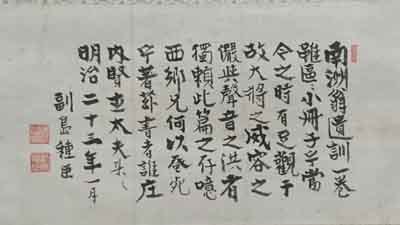 南洲翁遺訓一巻
雖區々小冊子當
今之時有足觀于
故大将之威容之
儼與聲音之洪者
獨頼此篇之存噫
西郷兄何以蚤死
乎著茲書者誰庄
内賢士太夫某々
明治二十三年一月
副島種臣